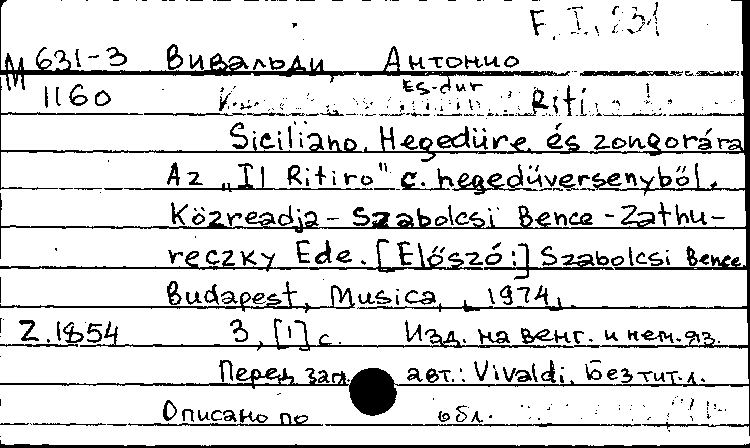 F. I. 231
М 631-3 Вивальди, Антонио
1160 Es-dur Ritiro
Siciliano. Hegedüre és zongorára
Az „Il Ritiro" c. hegedüversenyből.
Közreadja - Szabolcsi Bence - Zathu-
reczky Ede. [Előszó:] Szabolcsi Bence.
Budapest, Musica, 1974.
Z. 1854 3, [1] с. Изд. на венг. и нем. яз.
Перед заг. авт.: Vivaldi. Без тит. л.
Описано по обл.